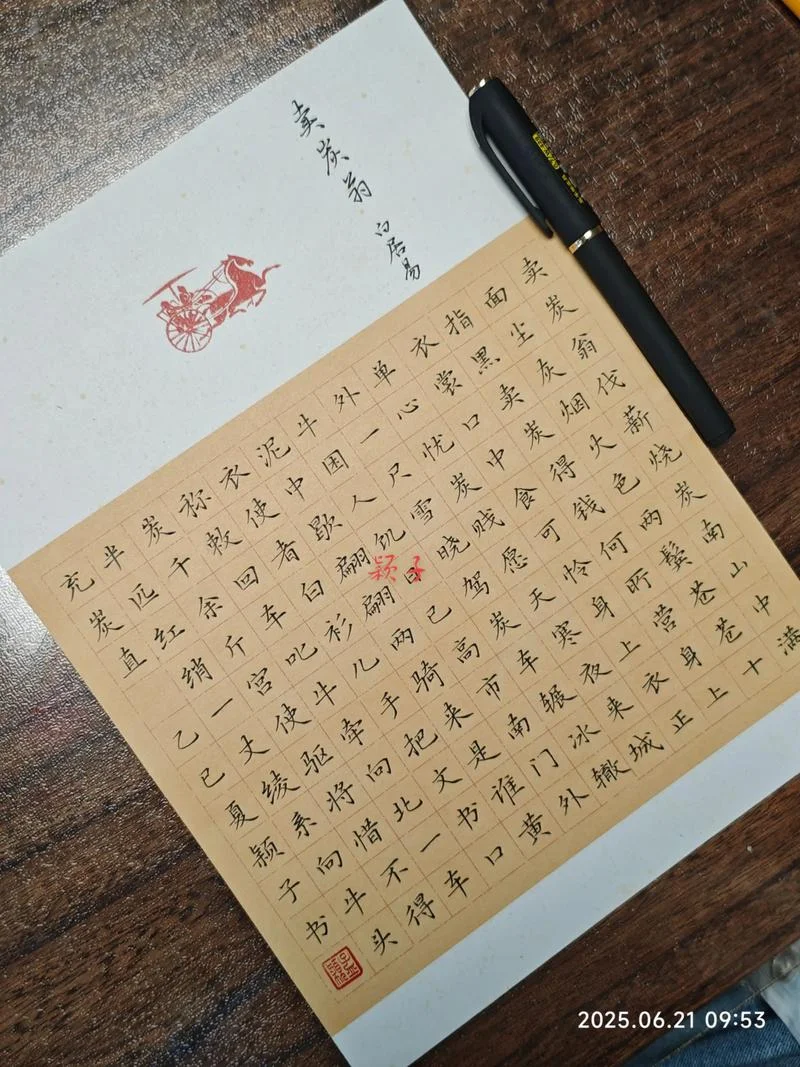 卖炭翁
白居易
卖炭翁伐薪烧炭南山中满
面尘灰烟火色两鬓苍苍十
指黑卖炭得钱何所营身上
衣裳口中食可怜身上衣正
单心忧炭贱愿天寒夜来城
外一尺雪晓驾炭车辗冰辙
牛困人饥日已高市南门外
泥中歇翩翩两骑来是谁黄
衣使者白衫儿手把文书口
称敕回车叱牛牵向北一车
炭千余斤宫使驱将惜不得
半匹红绡一丈绫系向牛头
充炭直 乙巳夏颖子书
颖子
2025.06.21 09:53